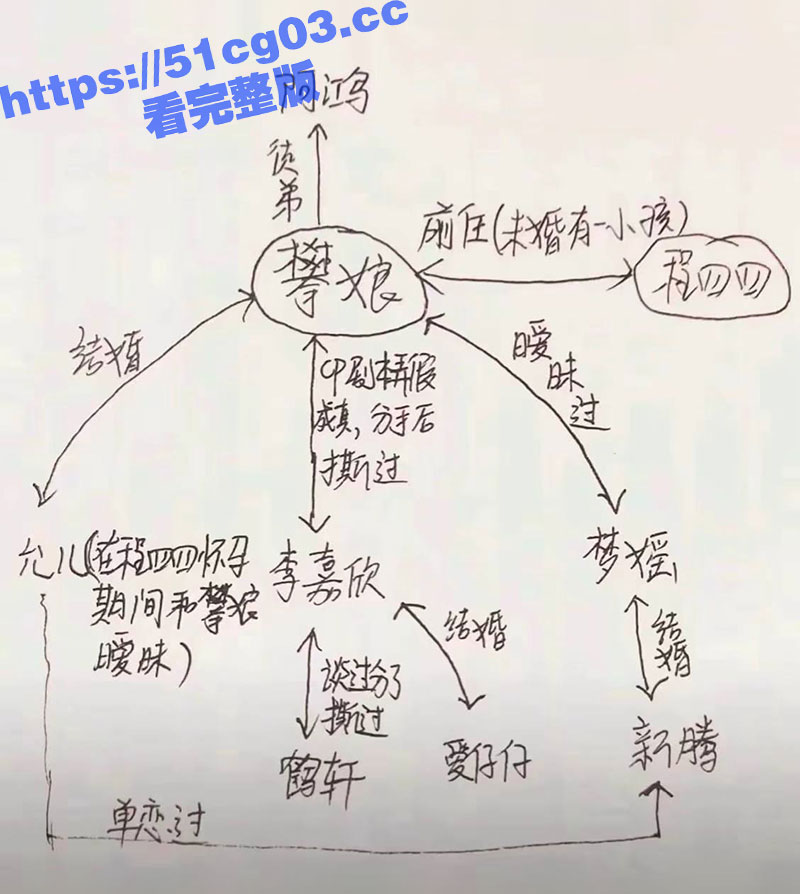 https://51cg03.cc
看完整版
阿鸿
徒弟
前任(未婚有一小孩)
攀娘
程四四
结婚
暧昧过
CP剧本弄假
成真,分手后
撕过
允儿(在程四四怀孕
期间和攀娘
暧昧)
李嘉欣
梦瑶
结婚
结婚
谈过分了
撕过
鹤轩
爱仔仔
新腾
单恋过